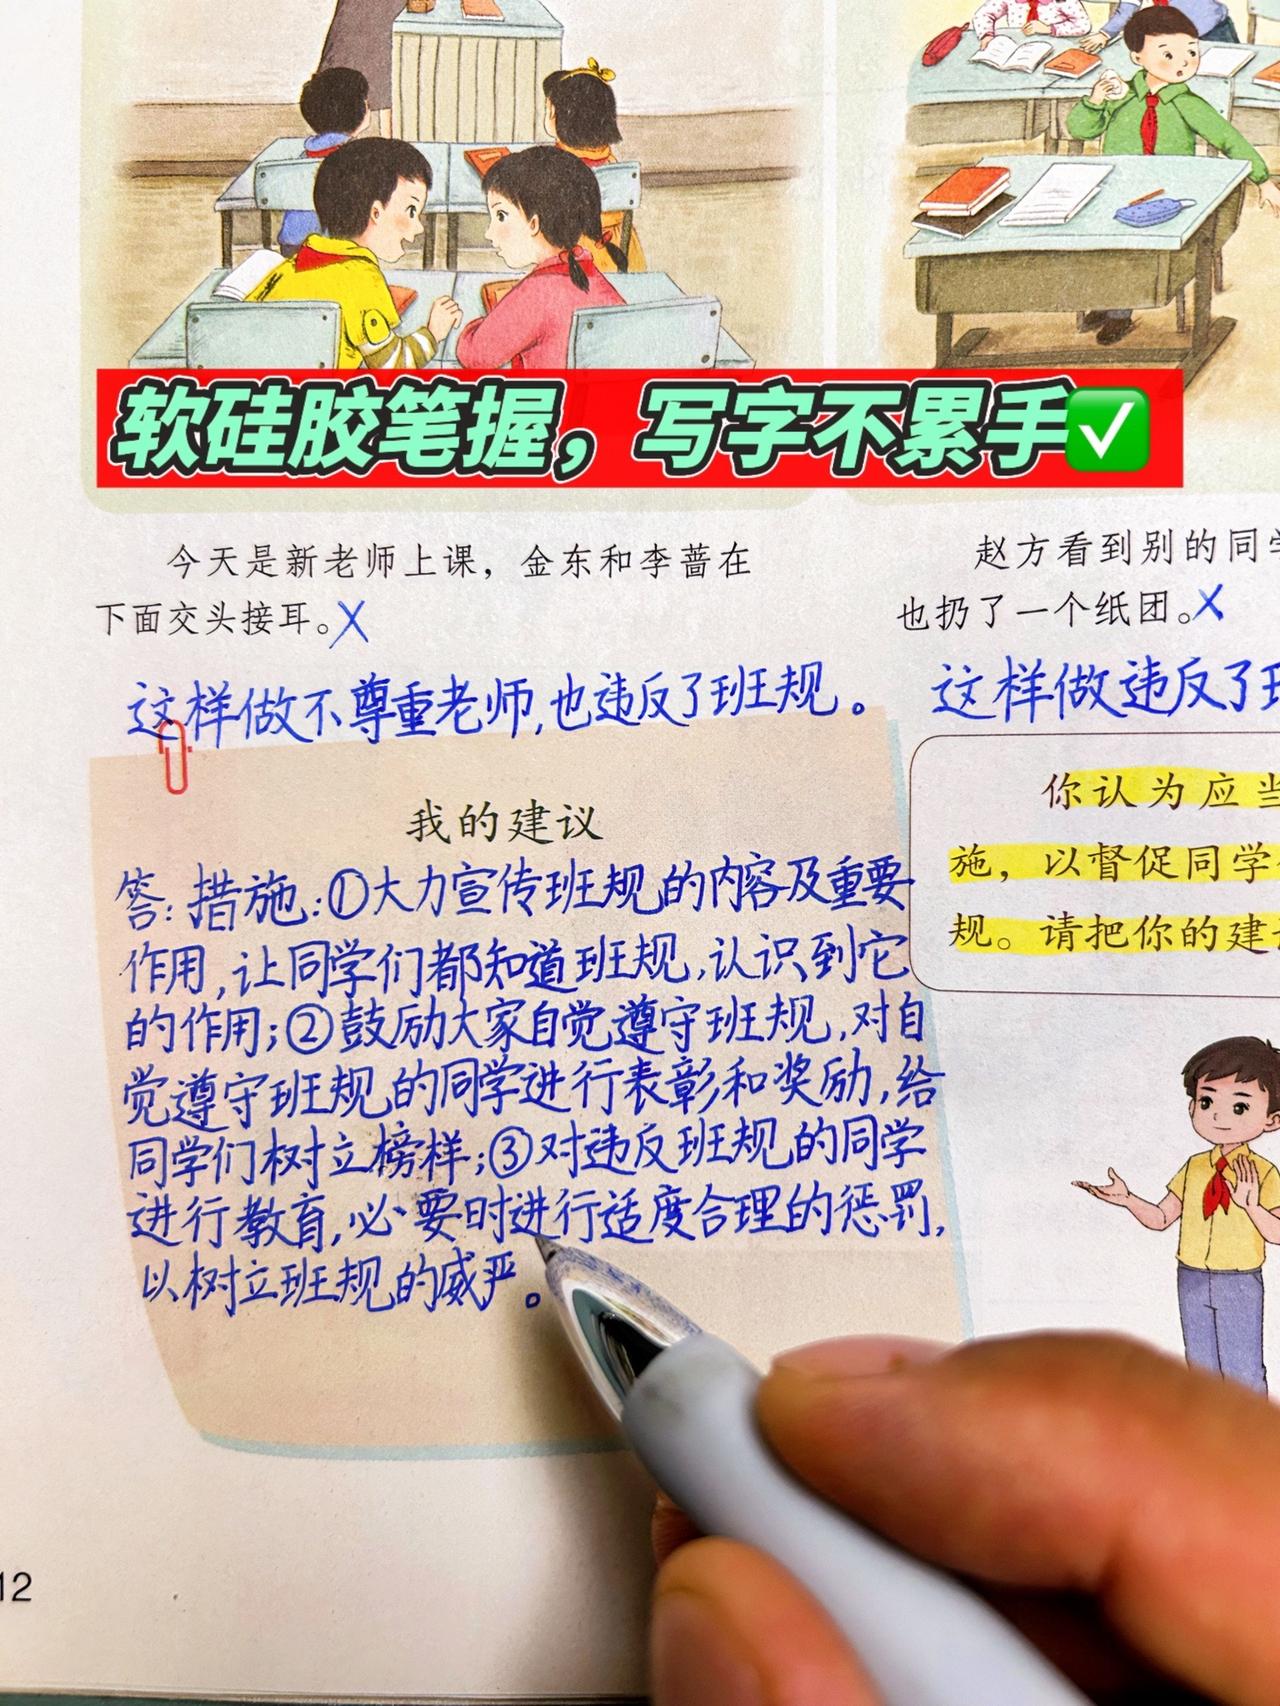 软硅胶笔握，写字不累手✅
今天是新老师上课，金东和李蔷在
下面交头接耳。X
这样做不尊重老师,也违反了班规。
赵方看到别的同学
也扔了一个纸团。X
这样做违反了班
我的建议
答:措施:①大力宣传班规的内容及重要
作用,让同学们都知道班规,认识到它
的作用;②鼓励大家自觉遵守班规,对自
觉遵守班规的同学进行表彰和奖励,给
同学们树立榜样;③对违反班规的同学
进行教育,必要时进行适度合理的惩罚,
以树立班规的威严。
你认为应当
施，以督促同学
规。请把你的建议
12